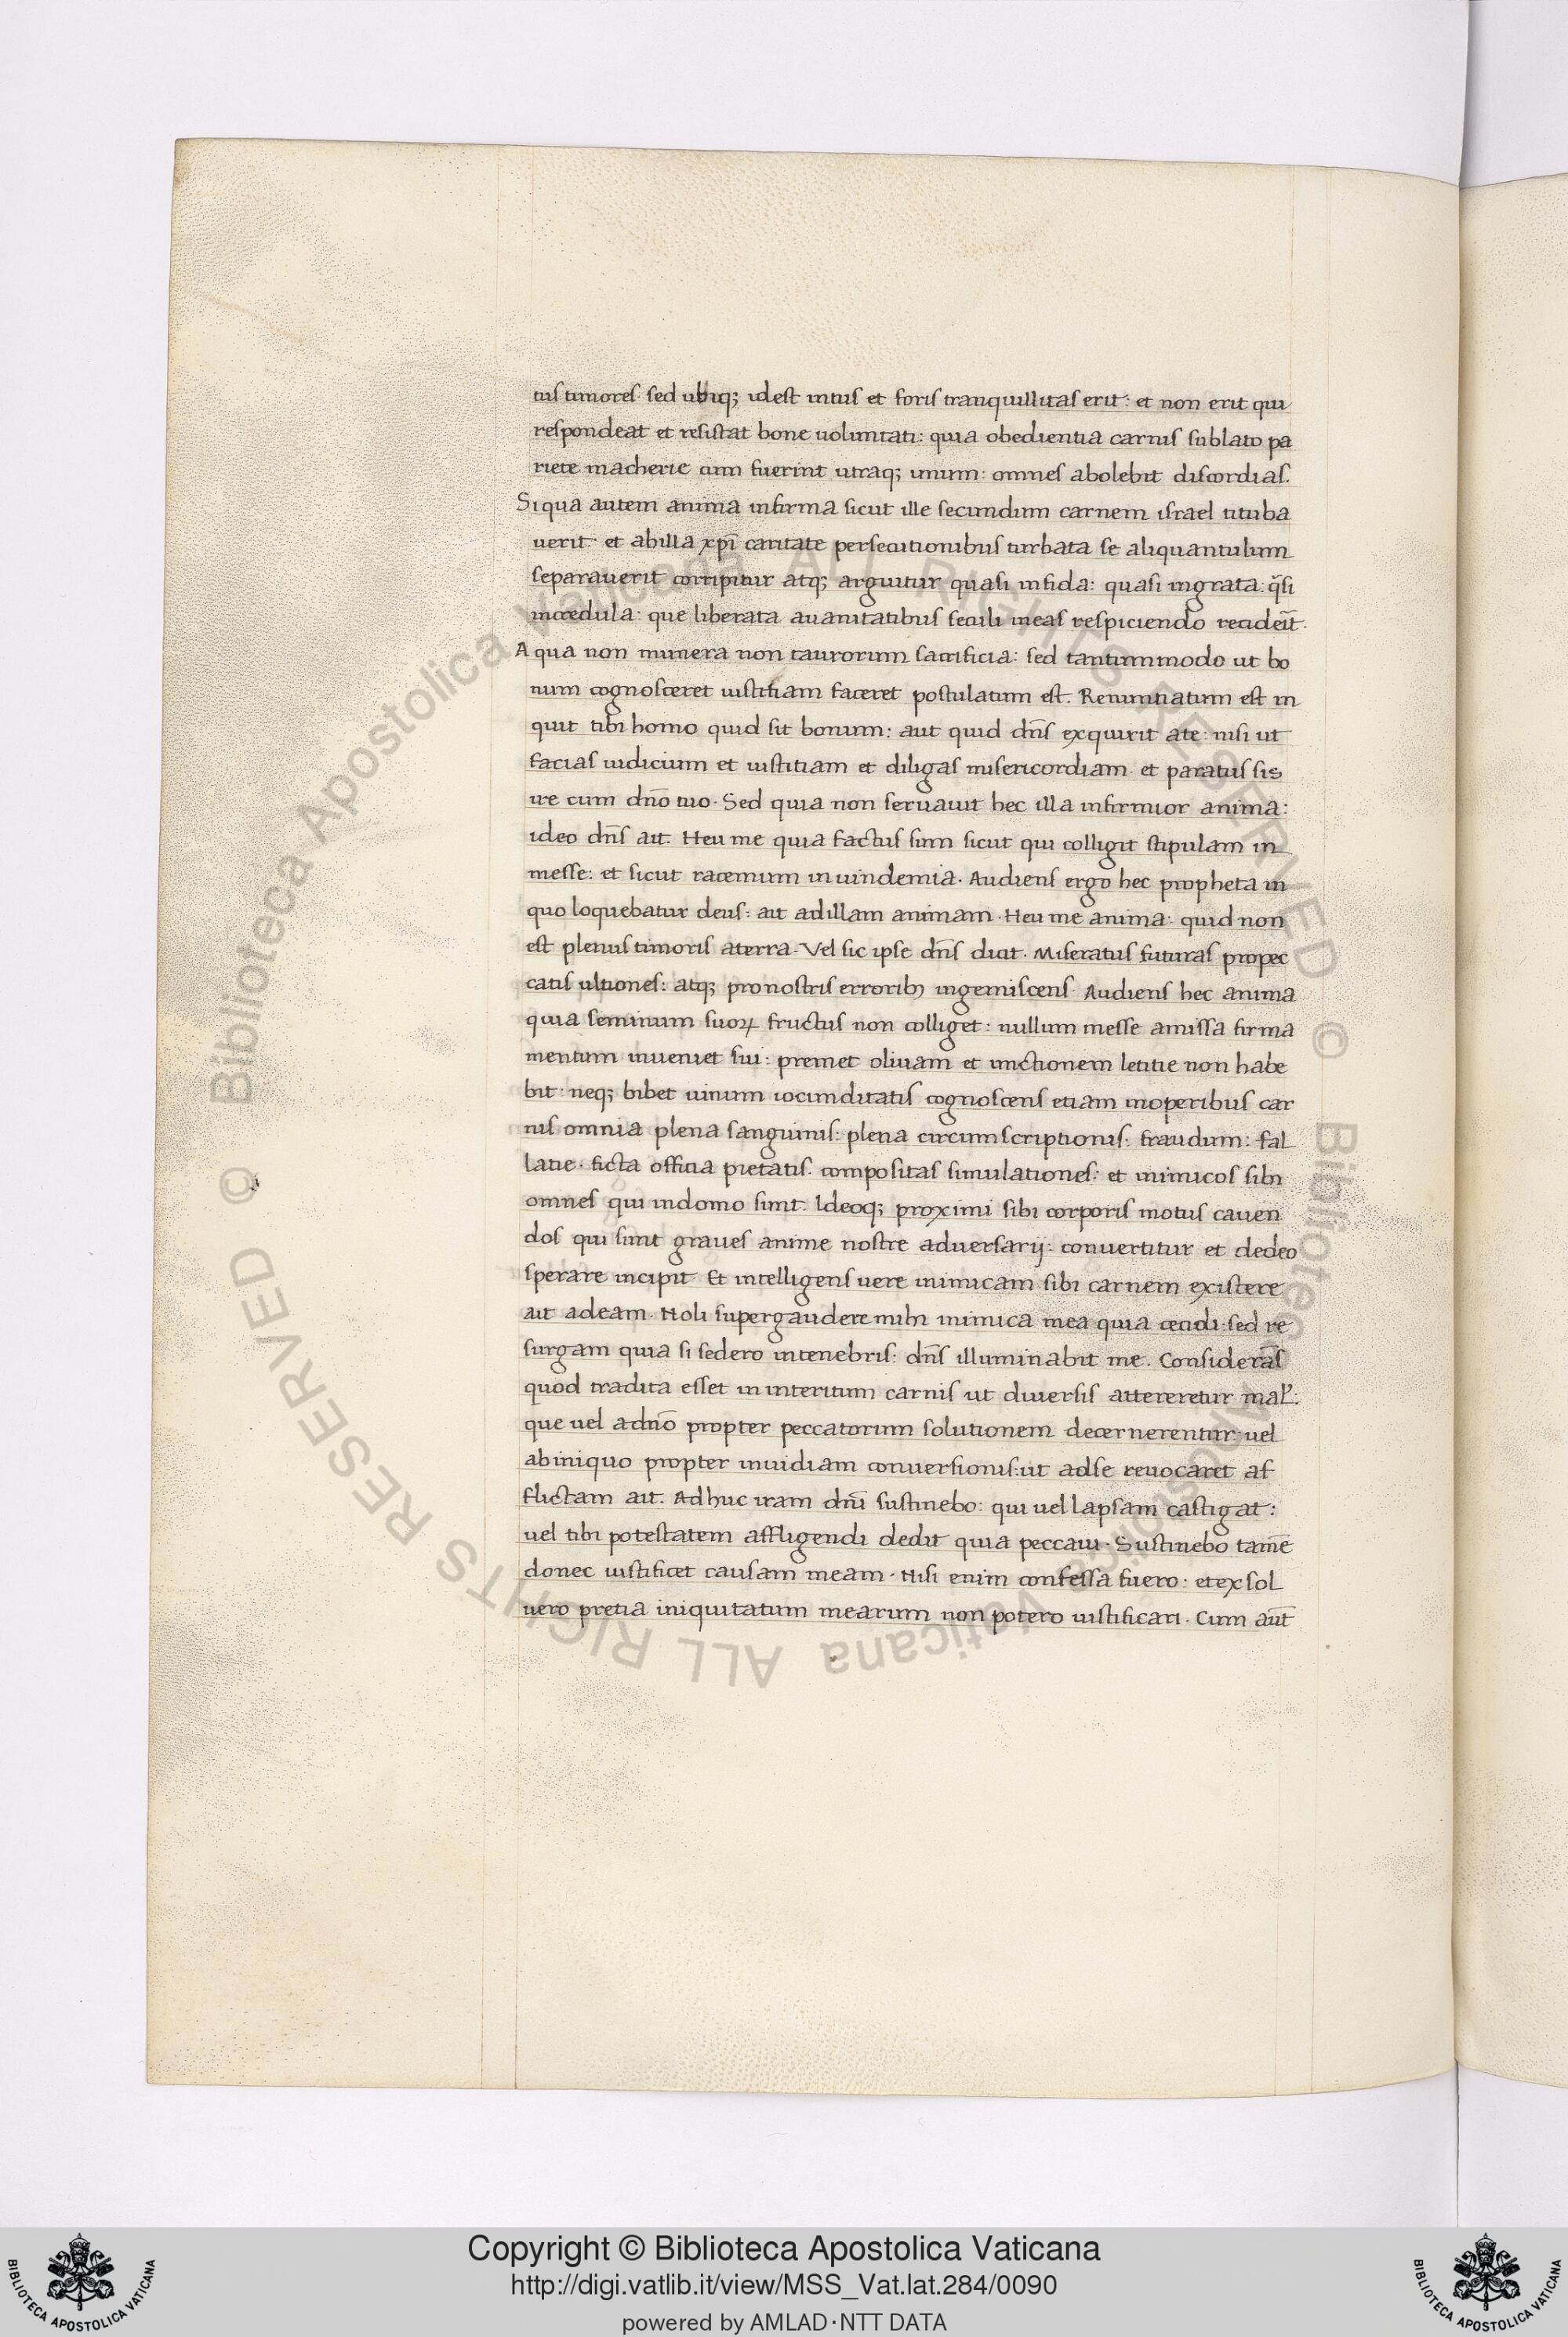 tus timores. sed ubiq; idest intus et foris tranquillitas erit: et non erit qui
respondeat et resistat bone uoluntati: quia obedientia carnis sublato pa
riete macherie cum fuerint utraq; unum: omnes abolebit discordias.
Siqua autem anima infirma sicut ille secundum carnem israel tituba
uerit. et abilla xp̄i caritate persecutionibus turbata se aliquantulum
separauerit corripitur atq; arguitur quasi infida: quasi ingrata: q̄si
incredula: que liberata auanitatibus seculi ineas respiciendo recideīt.
A qua non munera non taurorum sacrificia: sed tantummodo ut bo
num cognosceret iustitiam faceret postulatum est. Renuntiatum est in
quit tibi homo quid sit bonum: aut quid dn̄s exquirit ate: nisi ut
facias iudicium et iustitiam et diligas misericordiam. et paratus sis
ire cum dn̄o tuo. Sed quia non seruauit hec illa infirmior anima:
ideo dn̄s ait. Heu me quia factus sum sicut qui colligit stipulam in
messe: et sicut racemum inuindemia. Audiens ergo hec propheta in
quo loquebatur deus: ait adillam animam. Heu me anima: quid non
est plenus timoris aterra. Vel sic ipse dn̄s dicit. Miseratus futuras propec
catis ultiones: atq; pronostris errorib; ingemiscens. Audiens hec anima
quia seminum suoꝝ fructus non colliget: nullum messe amissa firma
mentum inueniet sui: premet oliuam et unctionem letitie non habe
bit: neq; bibet uinum iocunditatis cognoscens etiam inoperibus car
nis omnia plena sanguinis: plena circumscriptionis: fraudum: fal
latie. ficta officia pietatis. compositas simulationes: et inimicos sibi
omnes qui indomo sunt. Ideoq; proximi sibi corporis motus cauen
dos qui sunt graues anime nostre aduersarij: conuertitur et dedeo
sperare incipit. Et intelligens uere inimicam sibi carnem existere
ait adeam. Noli supergaudere mihi inimica mea quia cecidi: sed re
surgam quia si sedero intenebris: dn̄s illuminabit me. Considerās
quod tradita esset in interitum carnis ut diuersis attereretur mal':
que uel adn̄o propter peccatorum solutionem decernerentur: uel
abiniquo propter inuidiam conuersionis: ut adse reuocaret af
flictam ait. Adhuc iram dn̄i sustinebo: qui uel lapsam castigat:
uel tibi potestatem affligendi dedit quia peccaui. Sustinebo tamē
donec iustificet causam meam. Nisi enim confessa fuero: etexsol
uero pretia iniquitatum mearum non potero iustificari. Cum aūt
© Biblioteca Apostolica Vaticana ALL RIGHTS RESERVED © Biblioteca Apostolica Vaticana ALL RIGHTS RESERVED
Copyright © Biblioteca Apostolica Vaticana
http://digi.vatlib.it/view/MSS_Vat.lat.284/0090
powered by AMLAD·NTT DATA
BIBLIOTECA APOSTOLICA VATICANA
BIBLIOTECA APOSTOLICA VATICANA